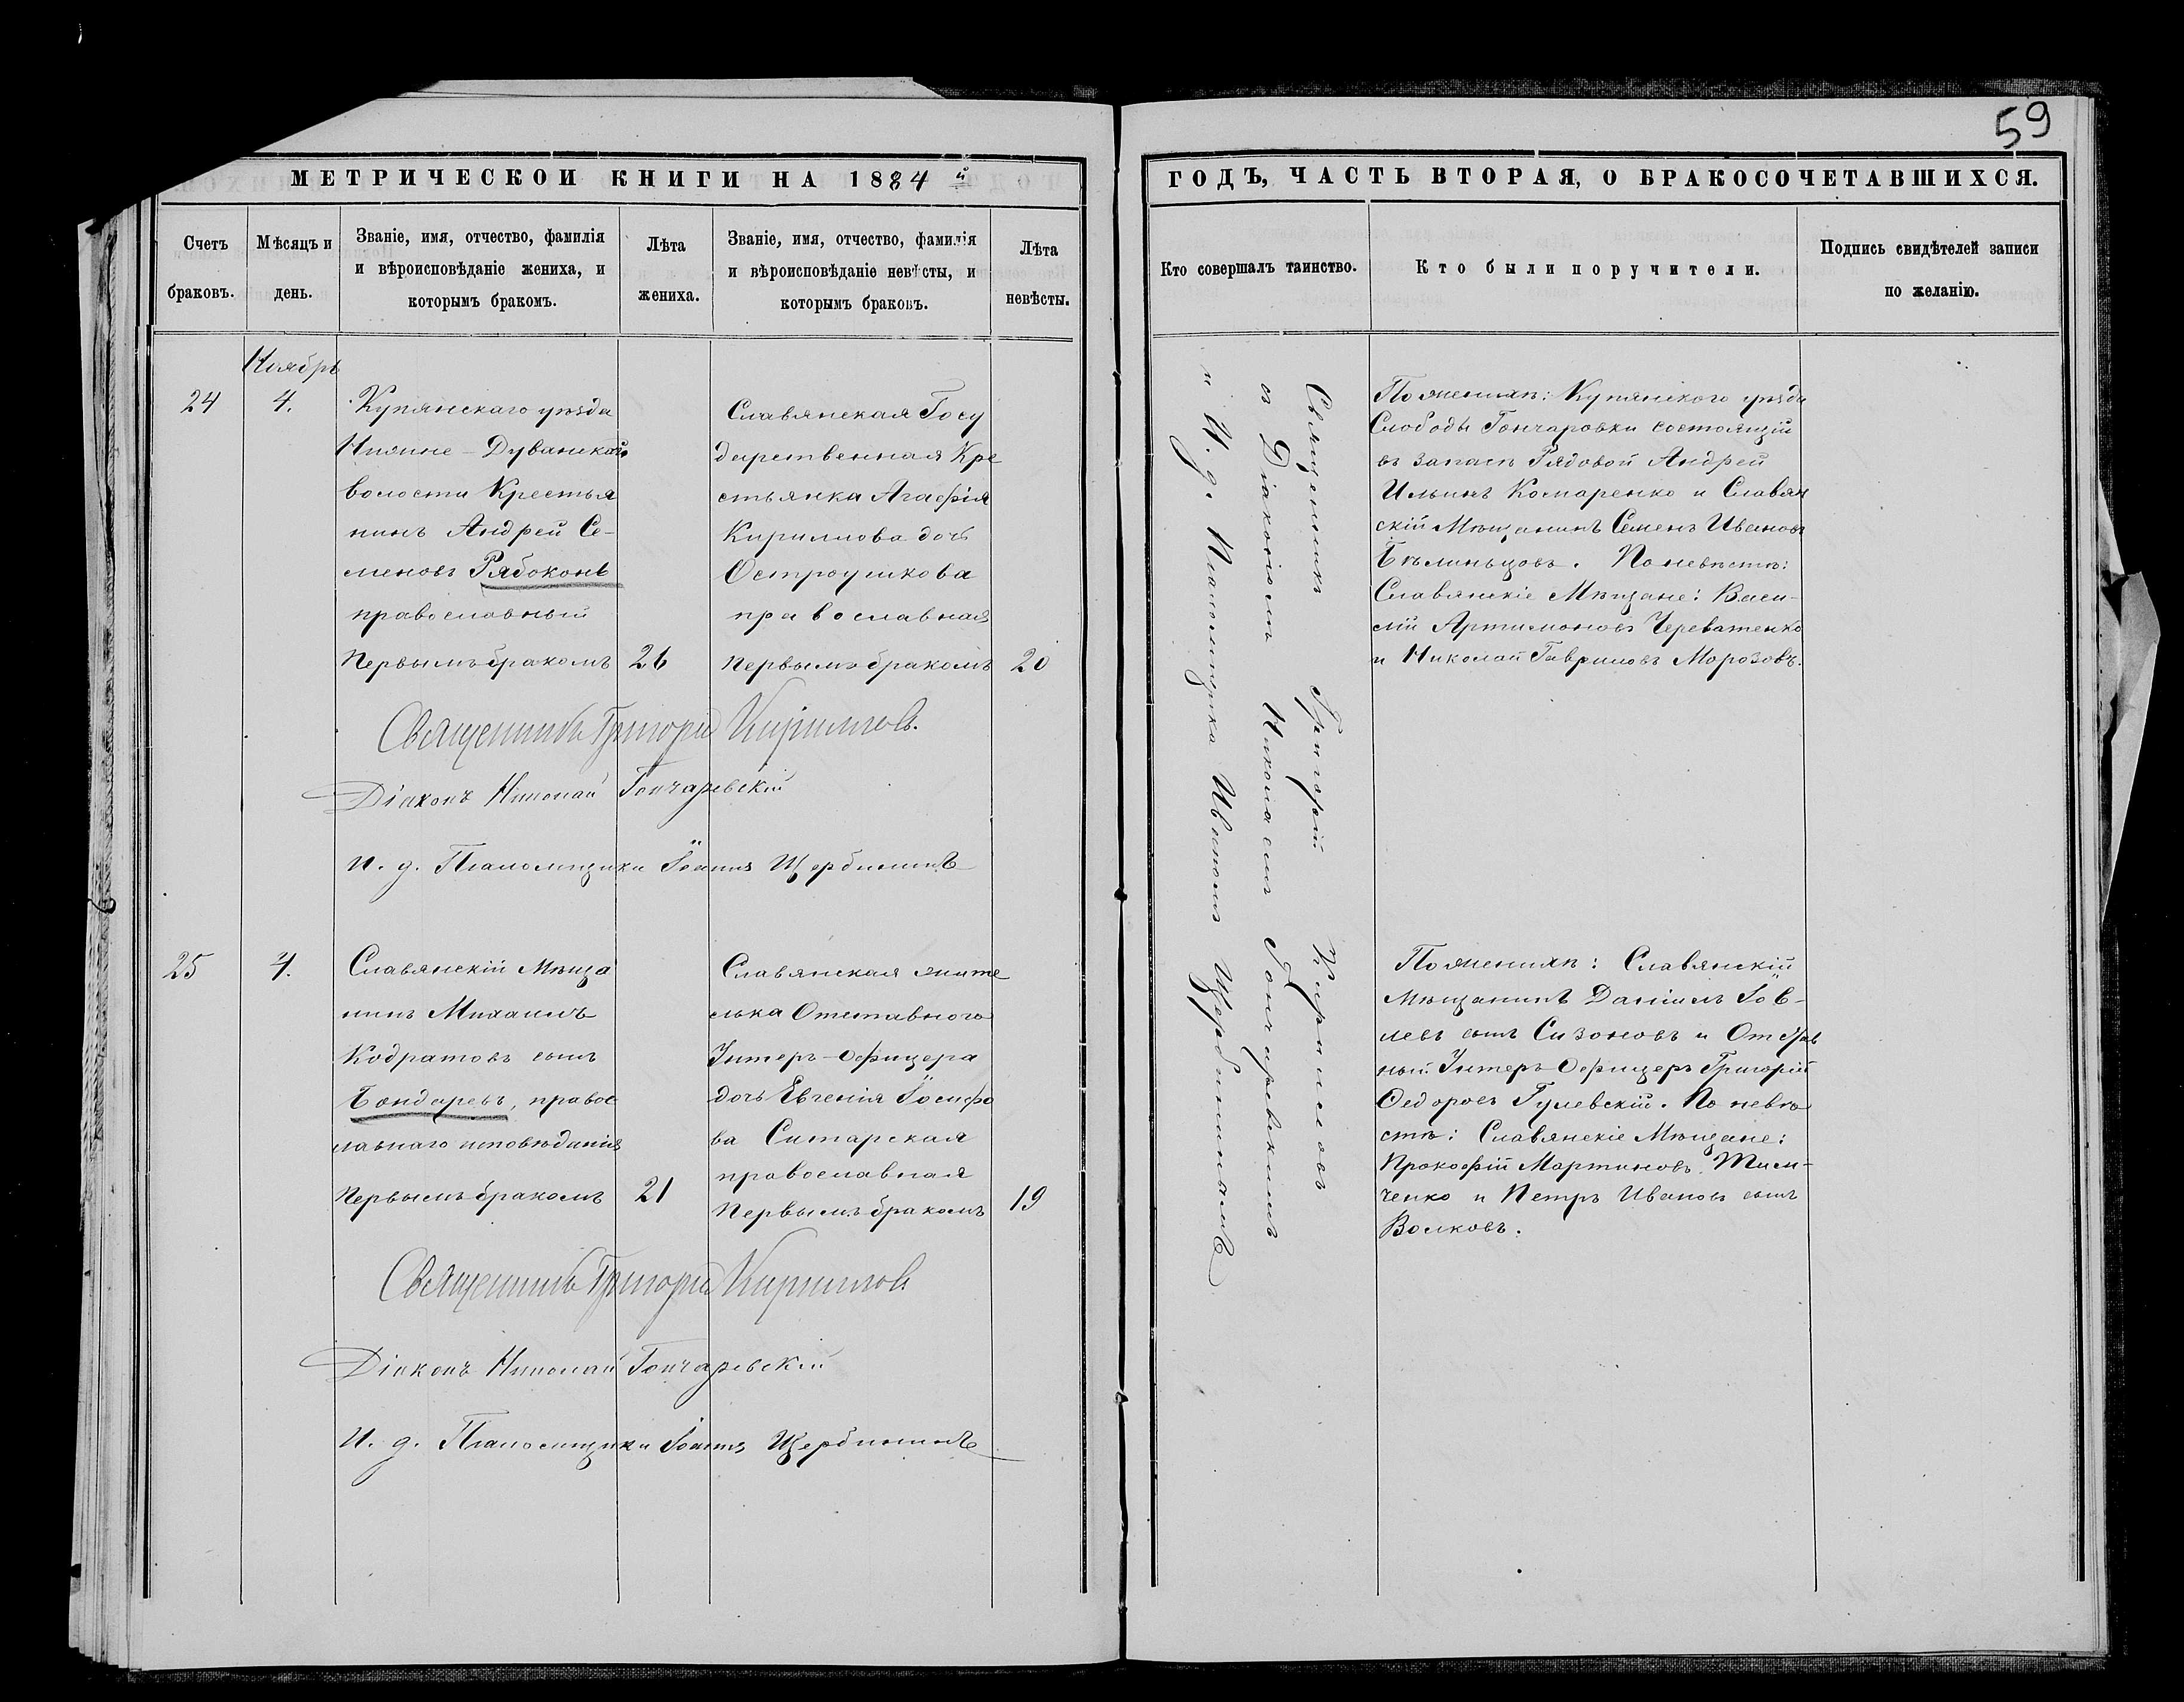 59
МЕТРИЧЕСКОЙ КНИГИ НА 1884 й
ГОДЪ, ЧАСТЬ ВТОРАЯ, О БРАКОСОЧЕТАВШИХСЯ.
Счетъ
браковъ.
Мѣсяцъ и
день.
Званіе, имя, отчество, фамилія
и вѣроисповѣданіе жениха, и
которымъ бракомъ.
Лѣта
жениха.
Званіе, имя, отчество, фамилія
и вѣроисповѣданіе невѣсты, и
которымъ браковъ.
Лѣта
невѣсты.
Кто совершалъ таинство.
Кто были поручители.
Подпись свидѣтелей записи
по желанію.
Ноябрь
24
4.
Купянскаго уѣзда
Нижне-Дуванской
волости Крестья
нинъ Андрей Се-
меновъ Рябоконь
православный
Первымъ бракомъ
26
Славянская Госу
дарственная Кре
стьянка Агафія
Кириллова дочь
Остроушкова
православная
Первымъ бракомъ
20
Священникъ Григорій Кирилловъ.
Діаконъ Николай Гончаревскій
И. д. Псаломщика Іоаннъ Щербининъ
25
4.
Славянскій Мѣща
нинъ Михаилъ
Кодратовъ сынъ
Бондаревъ, правос
лавнаго исповѣданія
Первымъ бракомъ
21
Славянская жите
лька Отставного
Унтеръ-Офицера
дочь Евгенія Іосифо
ва Ситарская
православная
Первымъ бракомъ
19
Священникъ Григорій Кирилловъ
Діаконъ Николай Гончаревскій
И. д. Псаломщика Іоаннъ Щербининъ
Священникъ Григорій Кирилловъ
съ Діакономъ Николаемъ Гончаревскимъ
и И. д. Псаломщика Иваномъ Щербининымъ
По женихѣ: Купянского уѣзда
Слободы Гончаровки состоящій
въ запасѣ Рядовой Андрей
Ильинъ Комаренко и Славян
скій Мѣщанинъ Семенъ Ивановъ
Бѣлиньцовъ. По невѣстѣ:
Славянскіе Мѣщане: Васи-
лій Артимоновъ Череватенко
и Николай Гавриловъ Морозовъ.
По женихѣ: Славянскій
Мѣщанинъ Даніилъ Іов-
левъ сынъ Сизоновъ и Отстав
ный Унтеръ-Офицеръ Григорій
Ѳедоровъ Гулевскій. По невѣ
стѣ: Славянскіе Мѣщане:
Прокофій Мартиновъ Тим-
ченко и Петръ Ивановъ сынъ
Волковъ.